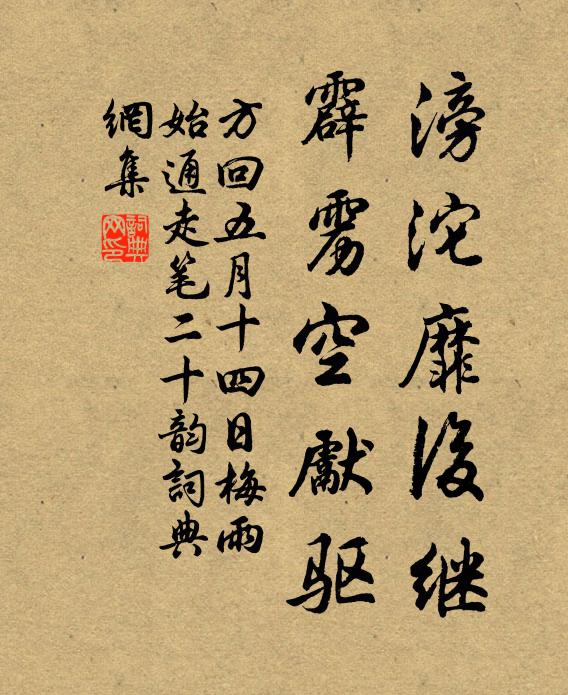 滂沱靡後继
霹雳空獻驱
方回五月十四日梅雨
始通走笔二十韵詞典
網集
詞典网印